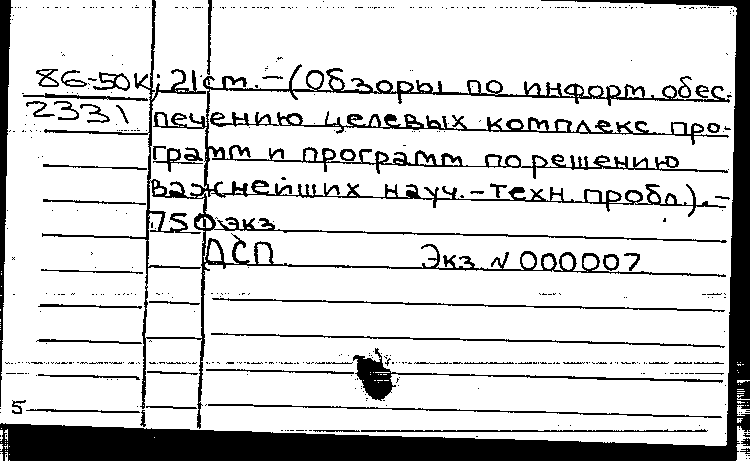 86-50К; 21см. - (Обзоры по информ. обес.
2331 печению целевых комплекс. про-
грамм и программ по решению
важнейших науч. - техн. пробл.). -
750 экз
ДСП Экз N 000007
5